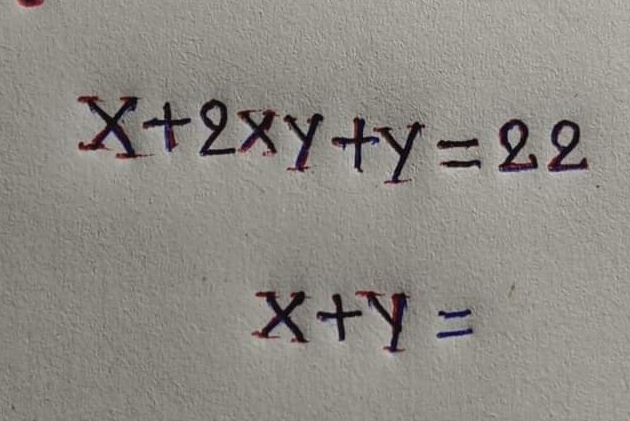 X+2xy+y=22
X+y=